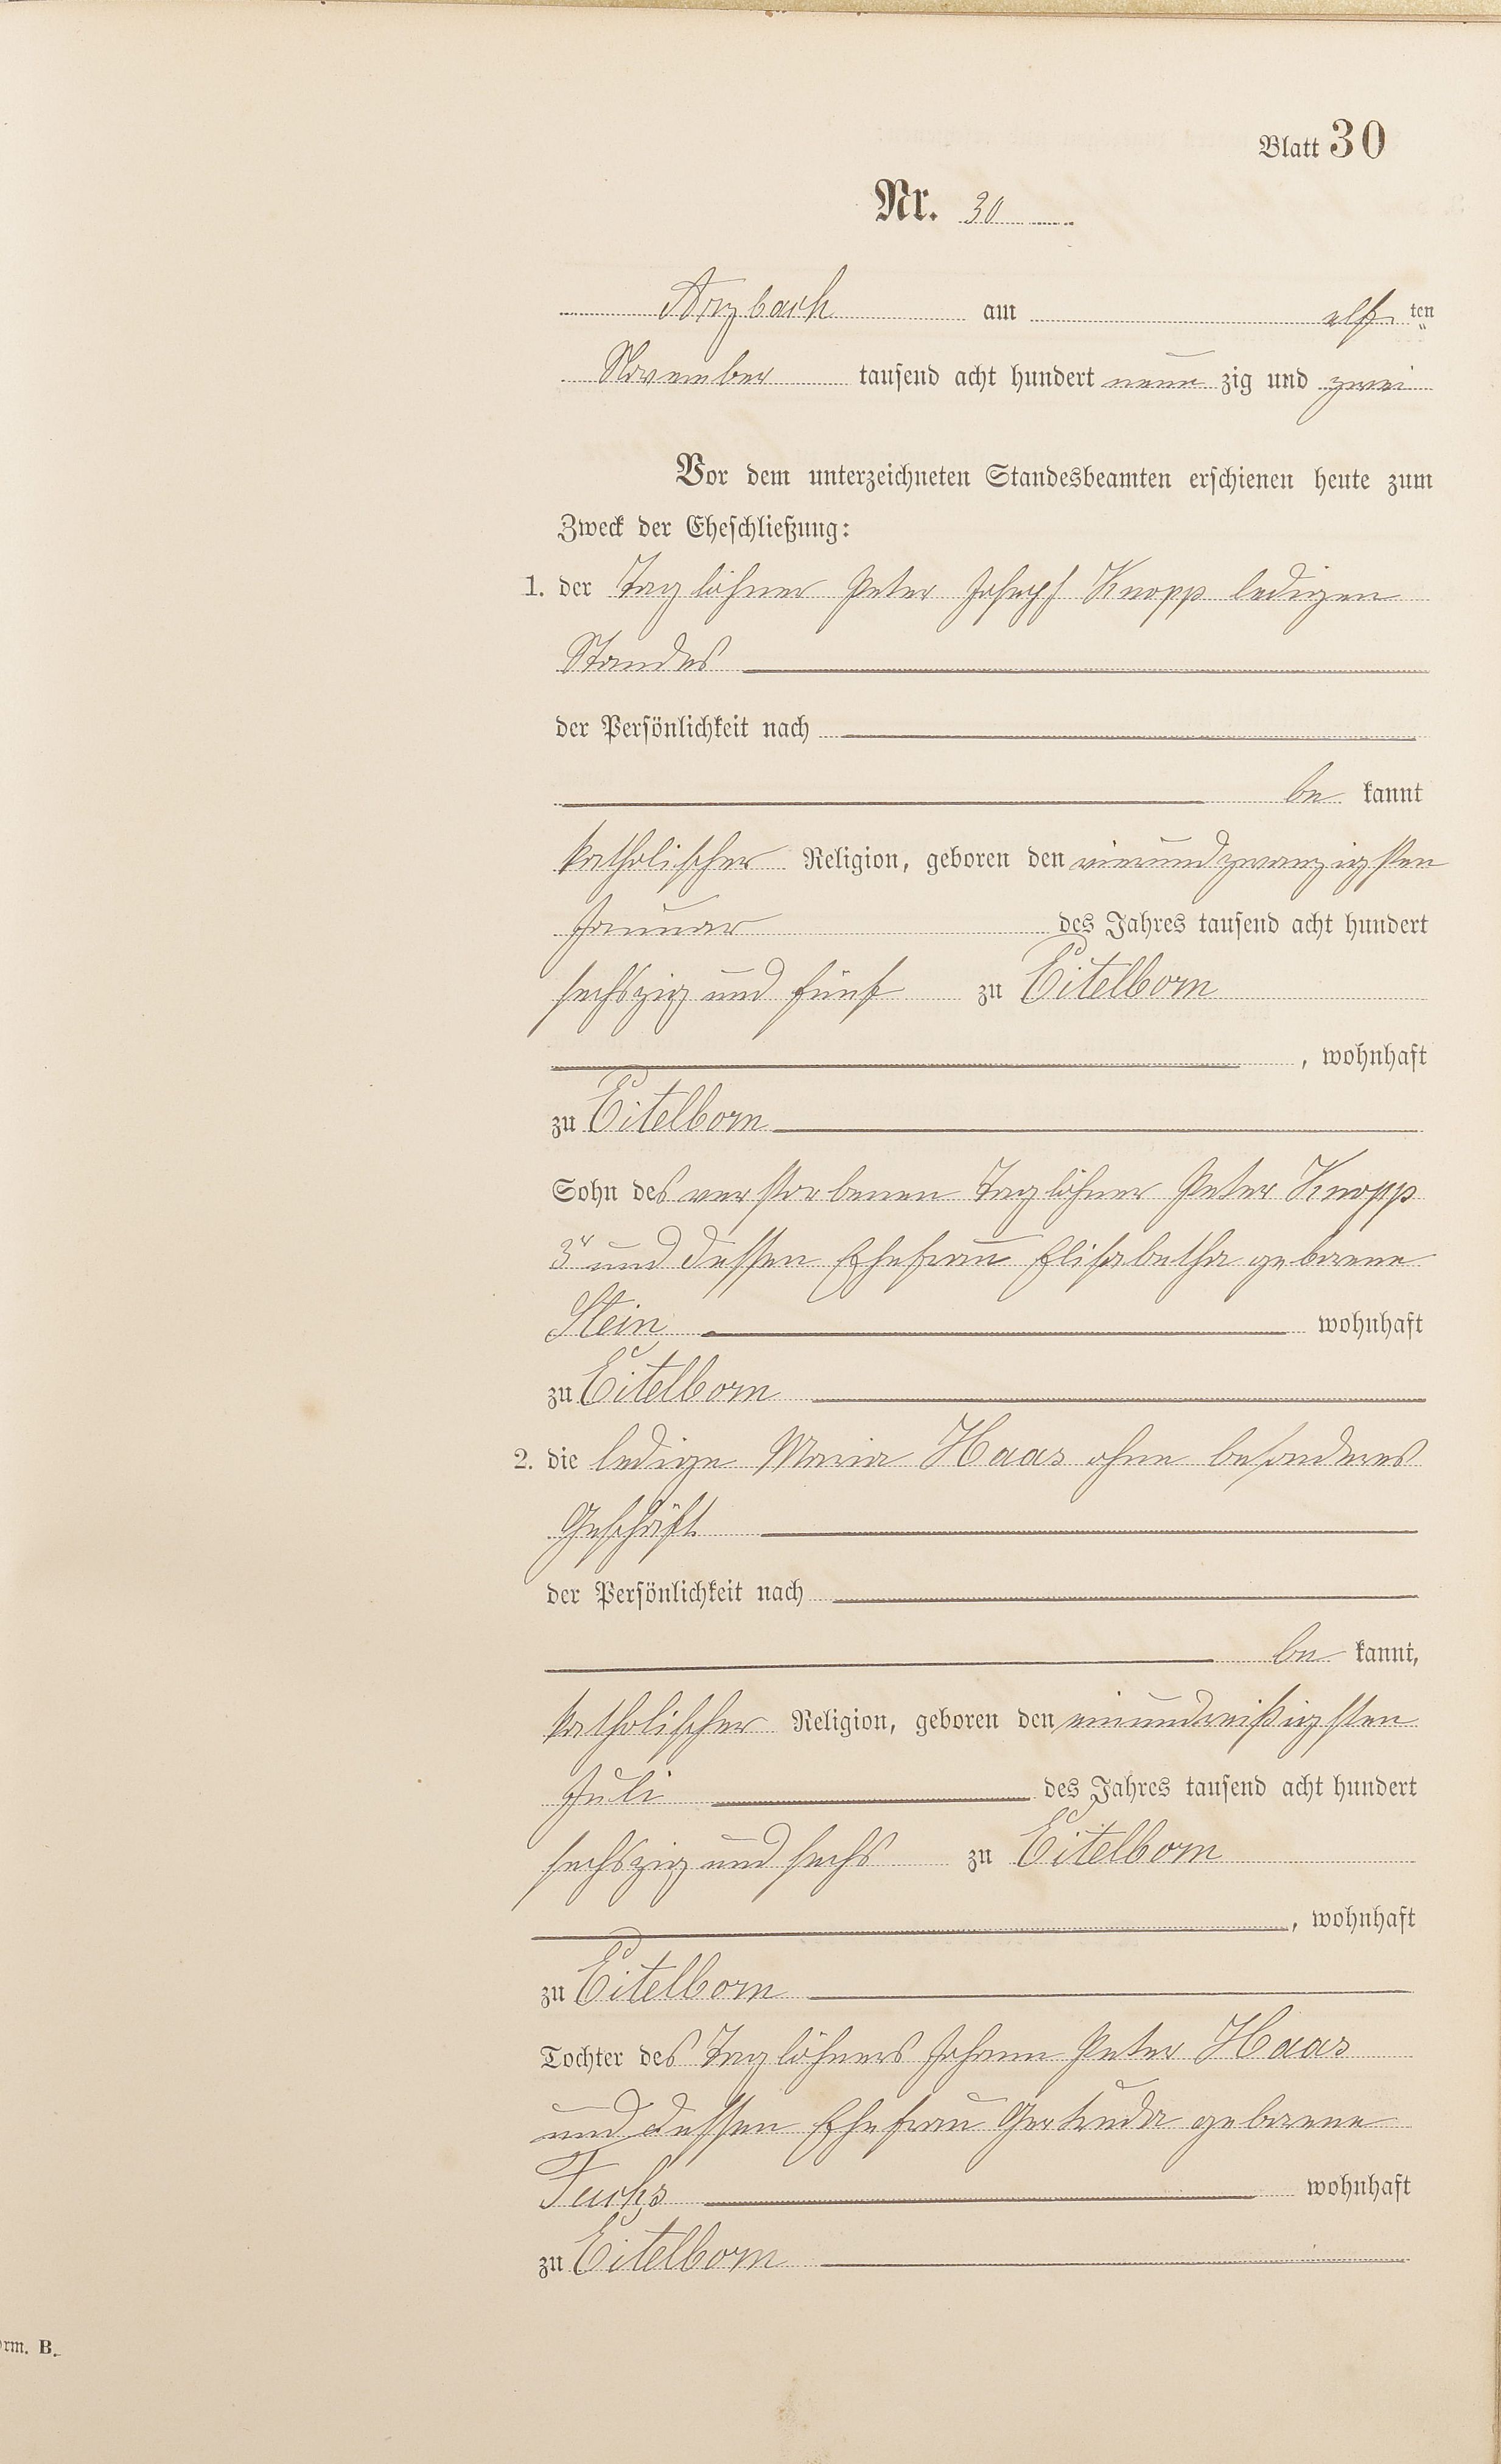 Blatt 30
Nr. 30
Arzbach am elf ten
November tausend acht hundert neun zig und zwei
Vor dem unterzeichneten Standesbeamten erschienen heute zum
Zweck der Eheschließung:
1. der Taglöhner Peter Joseph Knopp ledigen
Standes
der Persönlichkeit nach
be kannt
katholischer Religion, geboren den vierundzwanzigsten
Januar des Jahres tausend acht hundert
sechszig und fünf zu Eitelborn
, wohnhaft
zu Eitelborn
Sohn des verstorbenen Taglöhner Peter Knopp
3r und dessen Ehefrau Elisabetha geborene
Stein wohnhaft
zu Eitelborn
2. die ledige Maria Haas ohne besonderes
Geschäft
der Persönlichkeit nach
be kannt,
katholischer Religion, geboren den einunddreißigsten
Juli des Jahres tausend acht hundert
sechszig und sechs zu Eitelborn
, wohnhaft
zu Eitelborn
Tochter des Taglöhners Johann Peter Haas
und dessen Ehefrau Gertruda geborene
Fuchs wohnhaft
zu Eitelborn
orm. B.